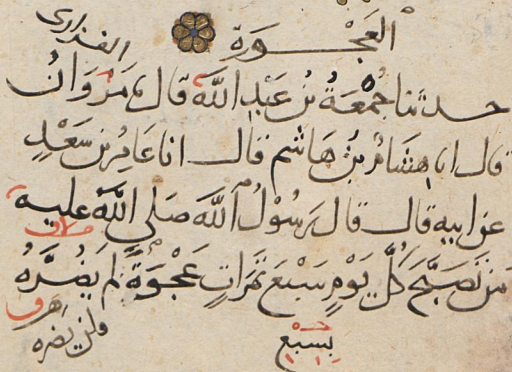 العَجْوَة
الفزارى
حدثنا جُمْعَةُ بنُ عَبْدِ اللّٰه قال ثنا مَرْوَانُ
قال انا هشَامُ بنُ هَاشم قال انا عَامِرُ بن سَعْدٍ
عن ابيه قال قال رَسُوْلُ اللّٰه صَلى اللّٰهُ عليه
مَن تَصَبَّحَ كُلَّ يَوْمٍ سَبْعَ تَمَرَاتٍ عَجْوَةً لَم يَضُرَّهُ
بِسَبْع
فلن يضره